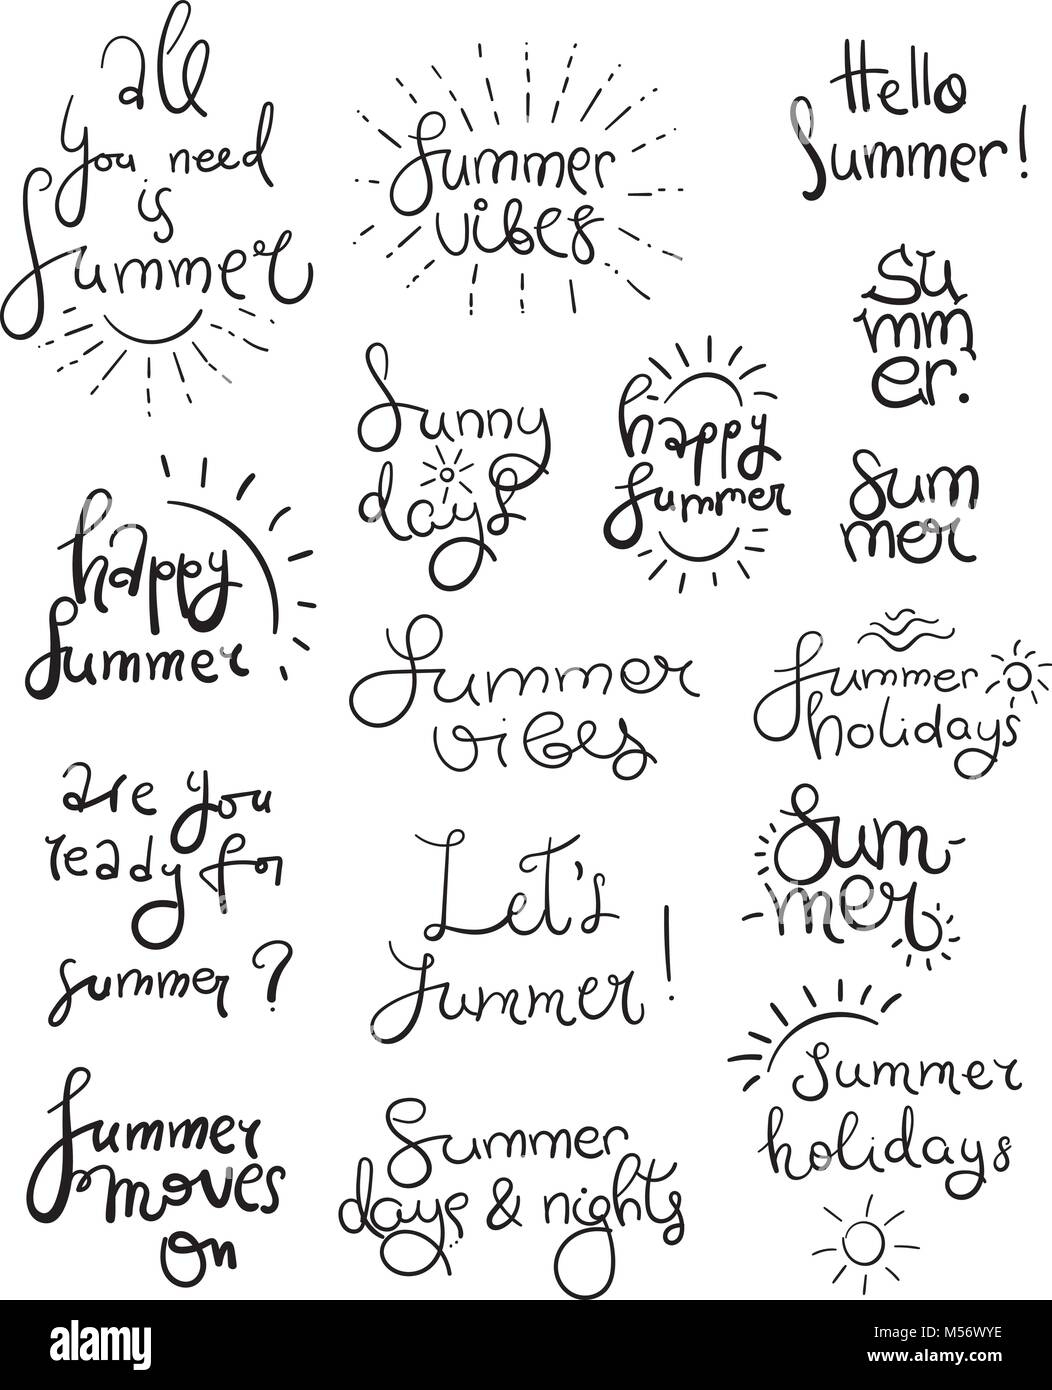 all
you need
is
summer
summer
vibes
Hello
Summer!
su
mm
er.
sunny
days
happy
summer
sum
mer
happy
summer.
summer
vibes
summer
holidays
are you
ready for
summer?
Let's
summer!
sum-
mer
summer
holidays
summer
moves
on
summer
days & nights
alamy
Image ID: M56WYE
www.alamy.com